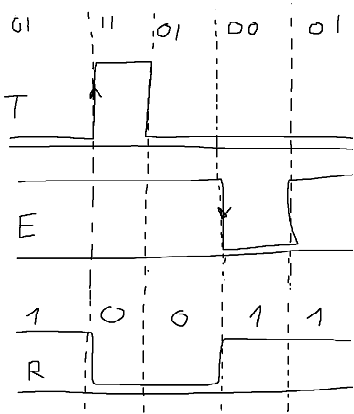 01 11 01 00 01
T
E
1 0 0 1 1
R